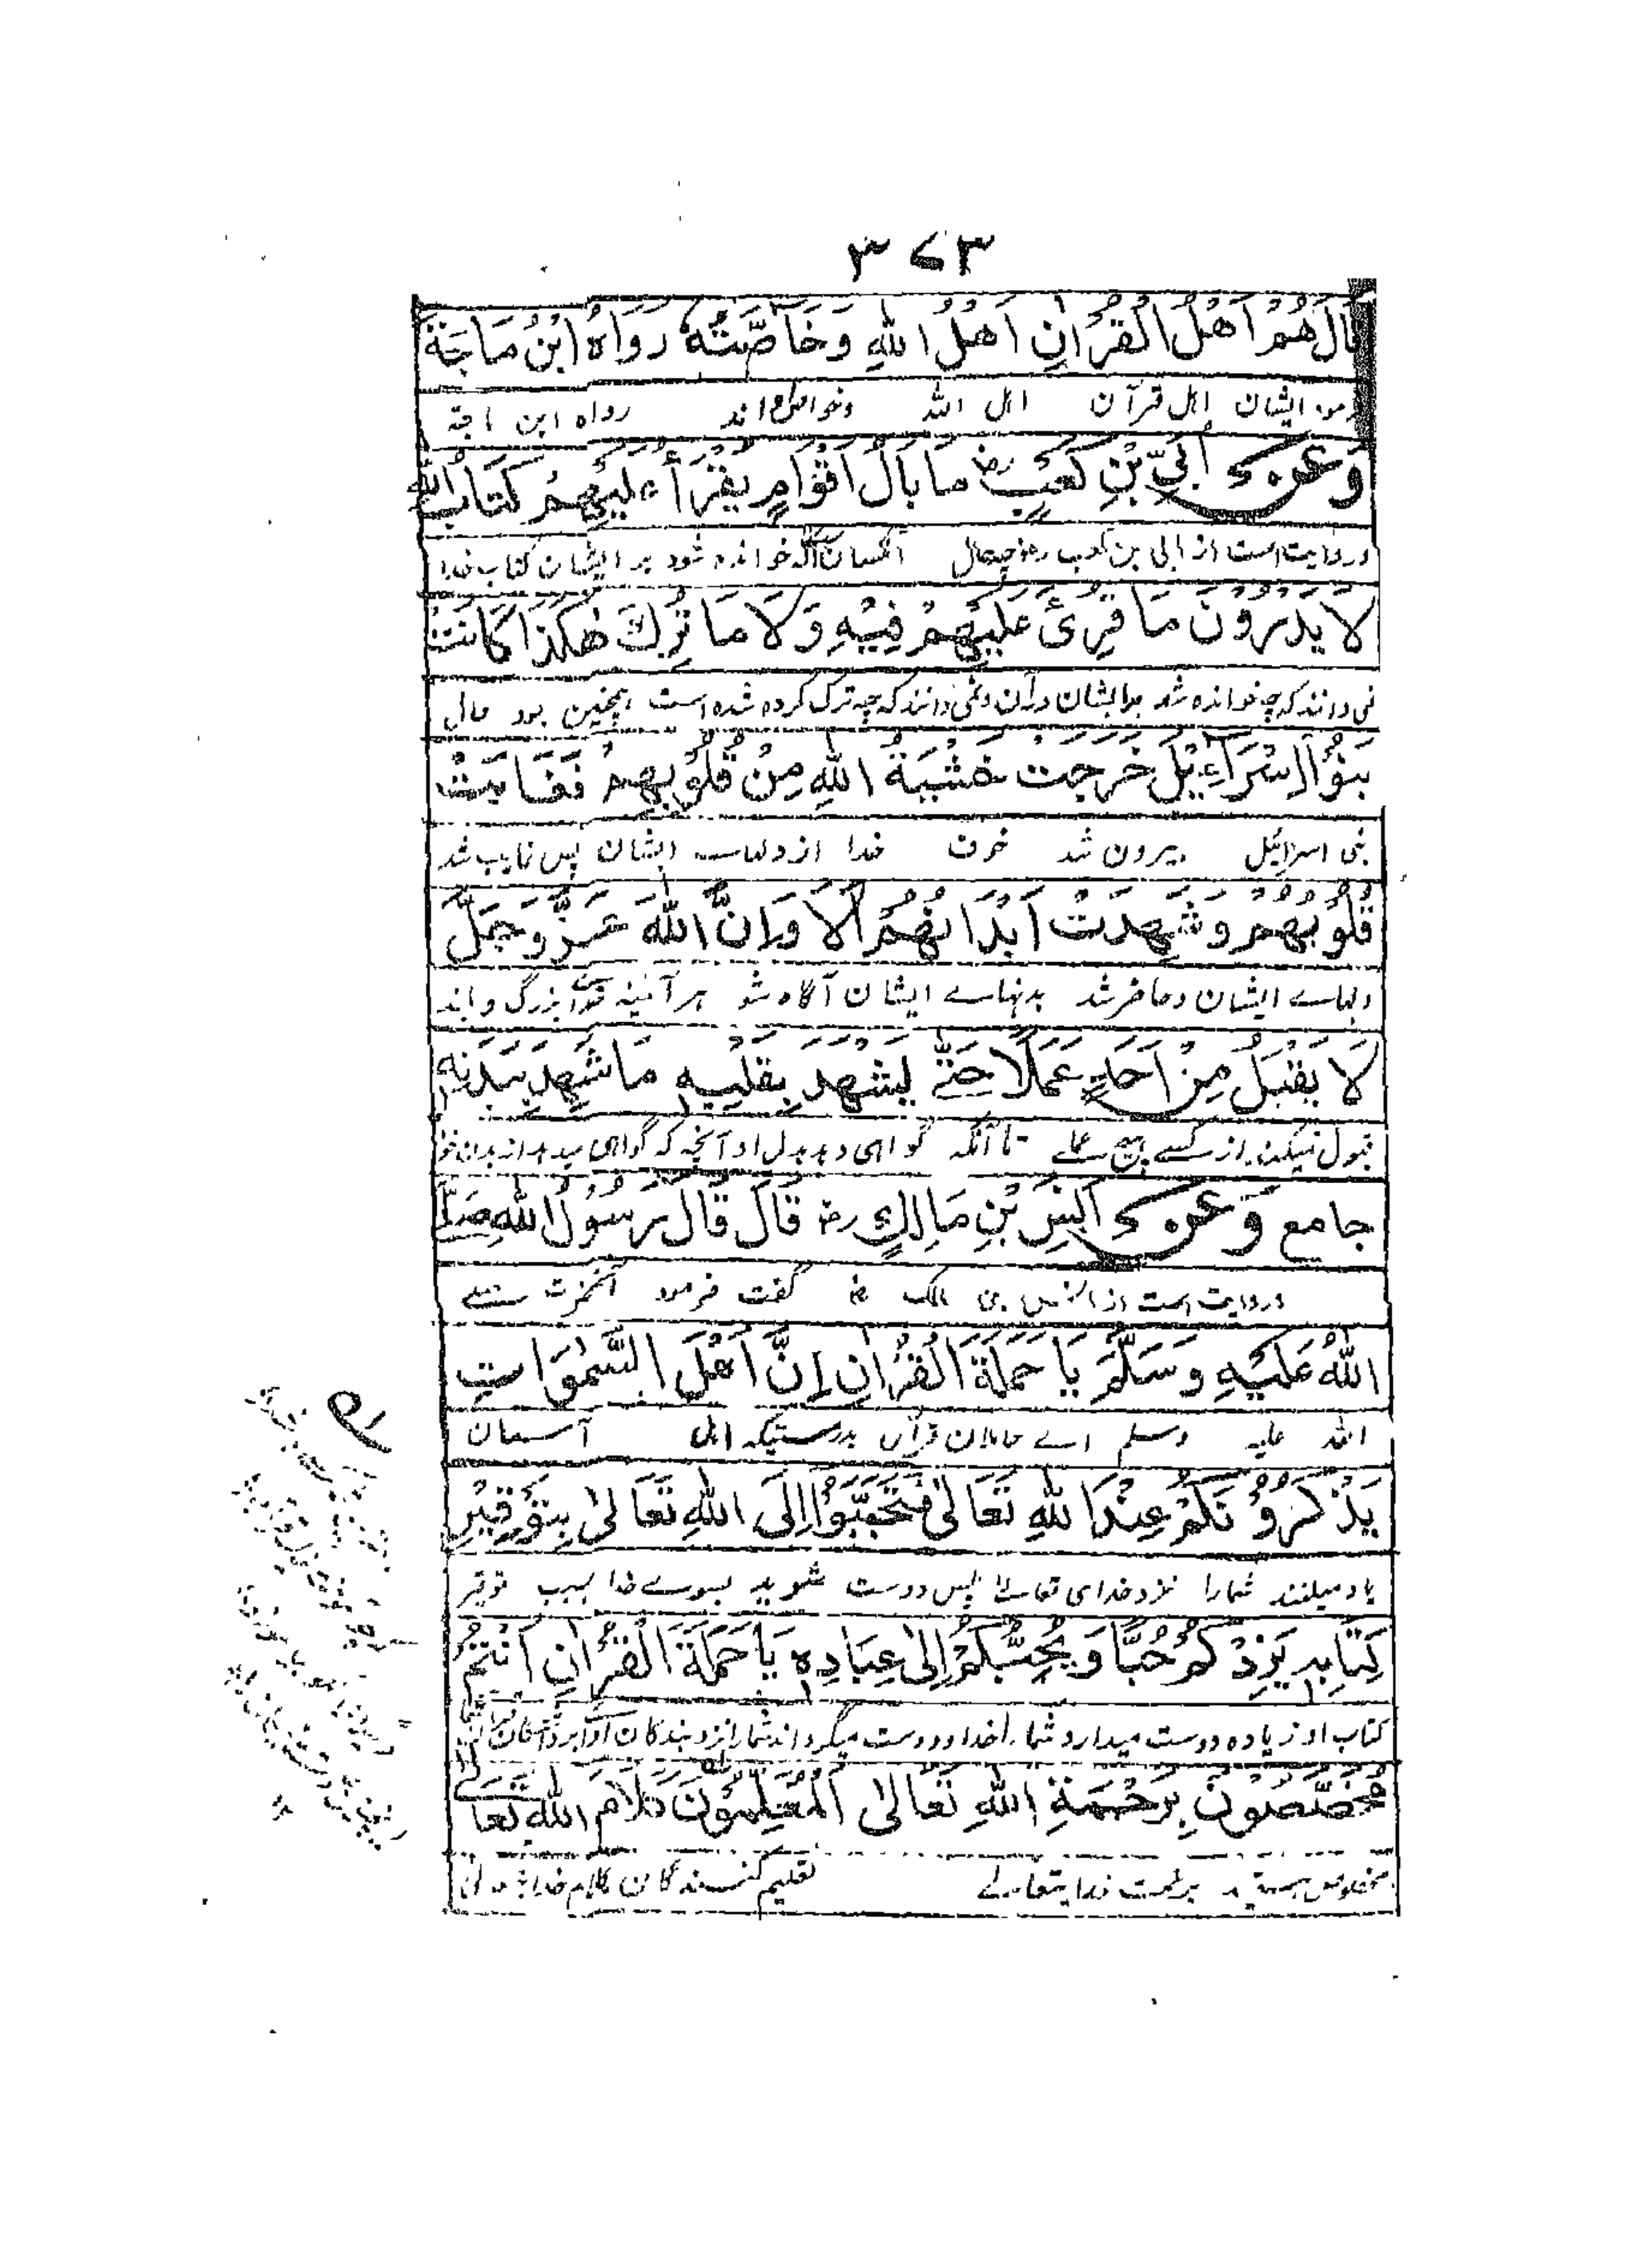 ۳۷۳
قَالَ هُمْ اَهْلُ الْقُرْاٰنِ اَهْلُ اللهِ وَخَآصَّتُهٗ رَوَاهُ ابْنُ مَاجَةَ
ایشان اہل قرآن اہل اللہ وخواص او اند رواہ ابن ماجۃ
وَعَنْ اُبَيِّ بْنِ كَعْبٍ رض مَا بَالُ اَقْوَامٍ يُقْرَأُ عَلَيْهِمْ كِتَابُ اللهِ
وروایت است از ابی بن کعب رض چیست حال آنکسان کہ خوانده شود بر ایشان کتاب خدا
لَا يَدْرُوْنَ مَا قُرِئَ عَلَيْهِمْ فِيْهِ وَلَا مَا تُرِكَ هٰكَذَا كَانَتْ
نمی دانند کہ چہ خوانده شد بر ایشان در آن و نمی دانند کہ چہ ترک کرده شده است ہمچنین بود حال
بَنُوْا اِسْرَاءِيْلَ خَرَجَتْ خَشْيَةُ اللهِ مِنْ قُلُوْبِهِمْ فَغَابَتْ
بنی اسرائیل بیرون شد خوف خدا از دلہاے ایشان پس غایب شد
قُلُوْبُهُمْ وَشَهِدَتْ اَبْدَانُهُمْ اَلَا وَاِنَّ اللهَ عَزَّ وَجَلَّ
دلہاے ایشان و حاضر شد بدنہاے ایشان آگاه شو ہر آئینہ خدا بزرگ و
لَا يَقْبَلُ مِنْ اَحَدٍ عَمَلًا حَتّٰى يَشْهَدَ بِقَلْبِهٖ مَا شَهِدَ بِبَدَنِهٖ
قبول نمیکند از کسے ہیچ عملے تا آنکہ گواہی دہد بدل او آنچہ کہ گواہی میدہد از بدن خود
جامع وَعَنْ اَنَسِ بْنِ مَالِكٍ رض قَالَ قَالَ رَسُوْلُ اللهِ صَلَّى
وروایت است از انس بن مالک رض گفت فرمود آنحضرت صلے
اللهُ عَلَيْهِ وَسَلَّمَ يَا حَمَلَةَ الْقُرْاٰنِ اِنَّ اَهْلَ السَّمٰوَاتِ
اللہ علیہ وسلم اے حاملان قرآن بدرستیکہ اہل آسمان
يَذْكُرُوْنَكُمْ عِنْدَ اللهِ تَعَالٰى فَتَحَبَّبُوْا اِلَى اللهِ تَعَالٰى بِتَوْقِيْرِ
یاد میکنند شمارا نزد خدای تعالے پس دوست شوید بسوے خدا بسبب توقیر
كِتَابِهٖ يَزِدْكُمْ حُبًّا وَيُحَبِّبْكُمْ اِلٰى عِبَادِهٖ يَا حَمَلَةَ الْقُرْاٰنِ اَنْتُمْ
کتاب او زیاده دوست میدارد شما را خدا و دوست میگرداند شما را نزد بندگان
مُخَصَّصُوْنَ بِرَحْمَةِ اللهِ تَعَالٰى اَلْمُعَلِّمُوْنَ كَلَامَ اللهِ تَعَالٰى
مخصوص برحمت خدایتعالے تعلیم کنندگان کلام